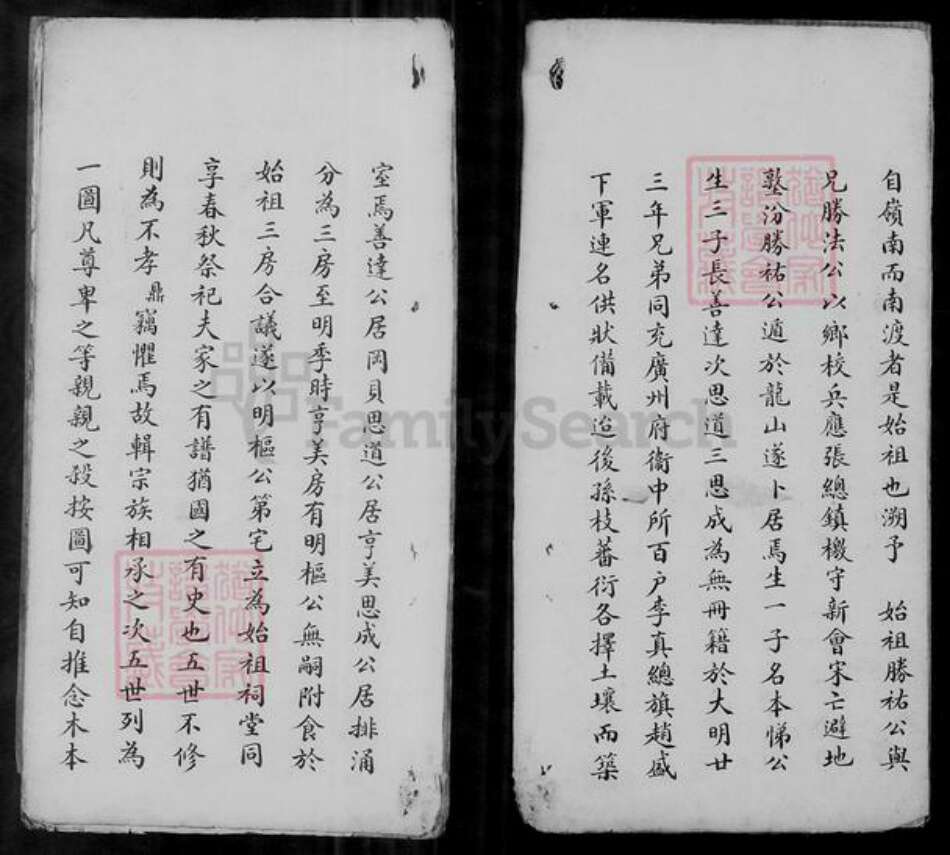 自嶺南而南渡者是始祖也溯予　始祖勝祐公與
兄勝法公以鄉校兵應張總鎮檄守新會宋亡避地
墊汾勝祐公遁於龍山遂卜居焉生一子名本悌公
生三子長善達次思道三思成為無冊籍於大明廿
三年兄弟同充廣州府衛中所百户李真總旗趙盛
下軍連名供狀備載迨後孫枝蕃衍各擇土壤而築
室焉善達公居岡貝思道公居亨美思成公居排涌
分為三房至明季時亨美房有明樞公無嗣附食於
始祖三房合議遂以明樞公第宅立為始祖祠堂同
享春秋祭祀夫家之有譜猶國之有史也五世不修
則為不孝鼎竊懼焉故輯宗族相承之次五世列為
一圖凡尊卑之等親親之殺按圖可知自推念木本
FamilySearch